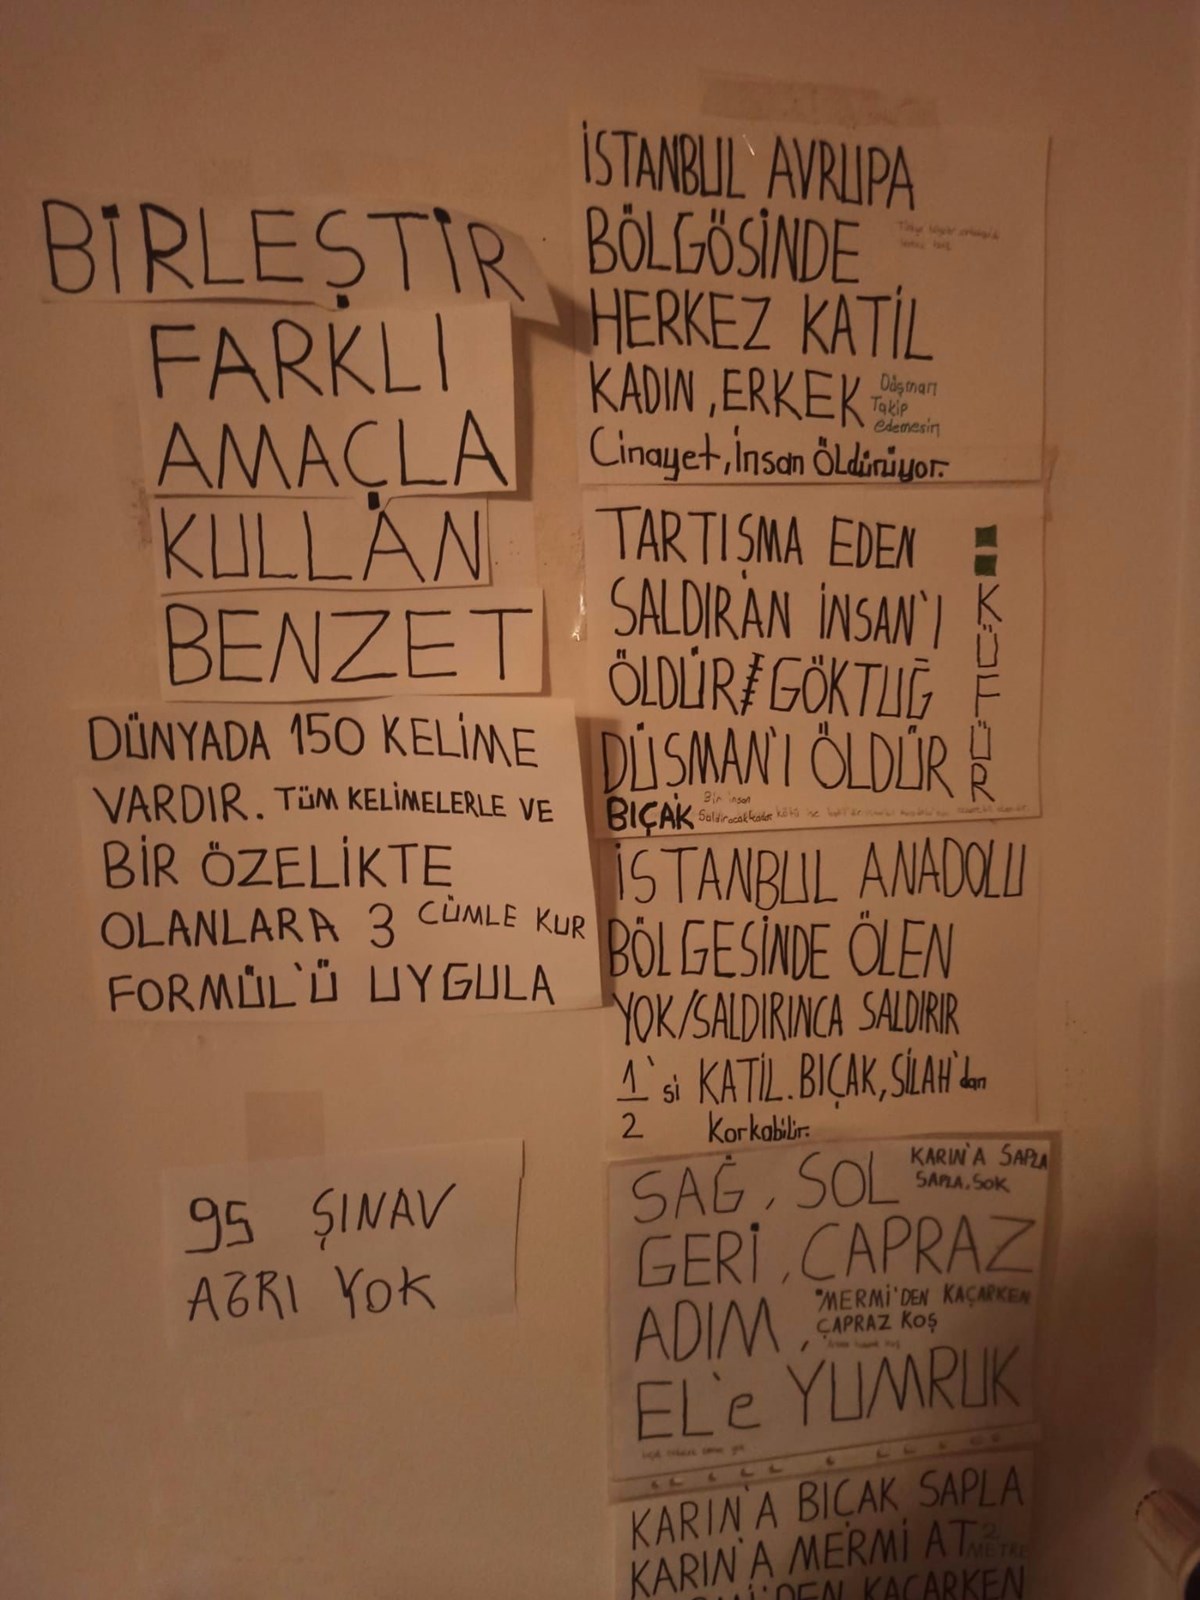 BİRLEŞTİR
FARKLI
AMAÇLA
KULLAN
BENZET
DÜNYADA 150 KELİME
VARDIR. TÜM KELİMELERLE VE
BİR ÖZELİKTE
OLANLARA 3 CÜMLE KUR
FORMÜL'Ü UYGULA
95 ŞINAV
AĞRI YOK
İSTANBUL AVRUPA
BÖLGÖSİNDE
HERKEZ KATİL
KADIN, ERKEK
Düşman
Takip
edemesin
Cinayet, İnsan Öldürüyor.
TARTIŞMA EDEN
SALDIRAN İNSAN'I
ÖLDÜR/GÖKTUĞ
DÜŞMAN'I ÖLDÜR
KÜFÜR
BIÇAK
Bir insan
İSTANBUL ANADOLU
BÖLGESİNDE ÖLEN
YOK/SALDIRINCA SALDIRIR
1/2'si KATİL. BIÇAK, SİLAH'dan
Korkabilir.
SAĞ, SOL KARIN'A SAPLA
SAPLA, SOK
GERİ, ÇAPRAZ
ADIM, "MERMİ'DEN KAÇARKEN
ÇAPRAZ KOŞ
EL'e YUMRUK
KARIN'A BIÇAK SAPLA
KARIN'A MERMİ AT 2 METRE
KAÇARKEN